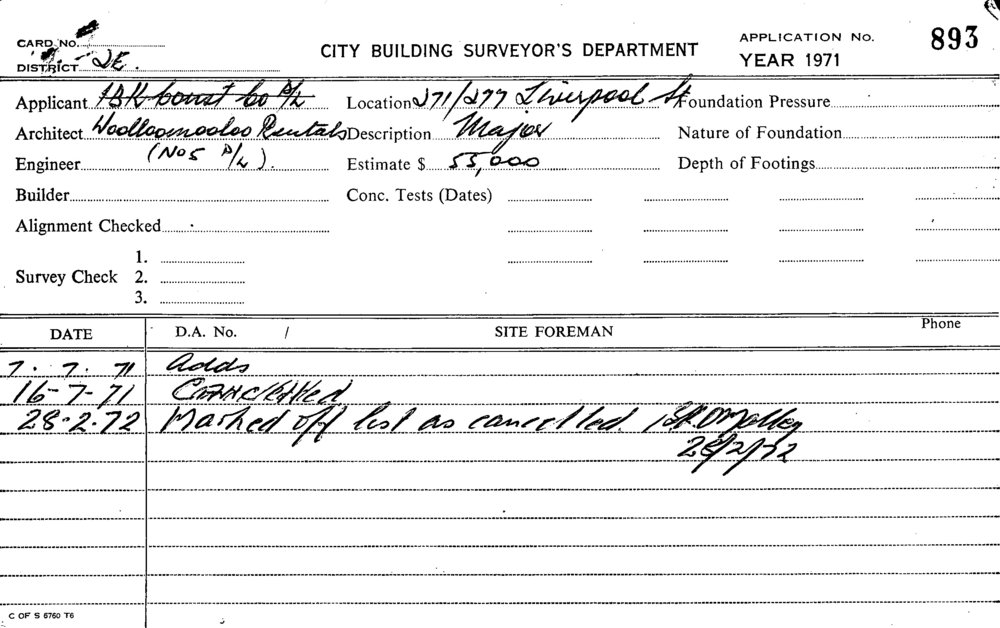 CARD No.
CITY BUILDING SURVEYOR'S DEPARTMENT
APPLICATION No. 893
DISTRICT 2E.
YEAR 1971
Applicant const Co P/L Location 271/277 Liverpool St Foundation Pressure
Architect Woolloomooloo Rentals Description Major Nature of Foundation
Engineer (No 5 P/L). Estimate $ 55,000 Depth of Footings
Builder Conc. Tests (Dates)
Alignment Checked
1.
Survey Check 2.
3.
DATE D.A. No. / SITE FOREMAN Phone
7. 7. 71 Adds
16-7-71 Cancelled
28-2-72 Marked off list as cancelled. O'Malley
28/2/72
C OF S 6760 T6